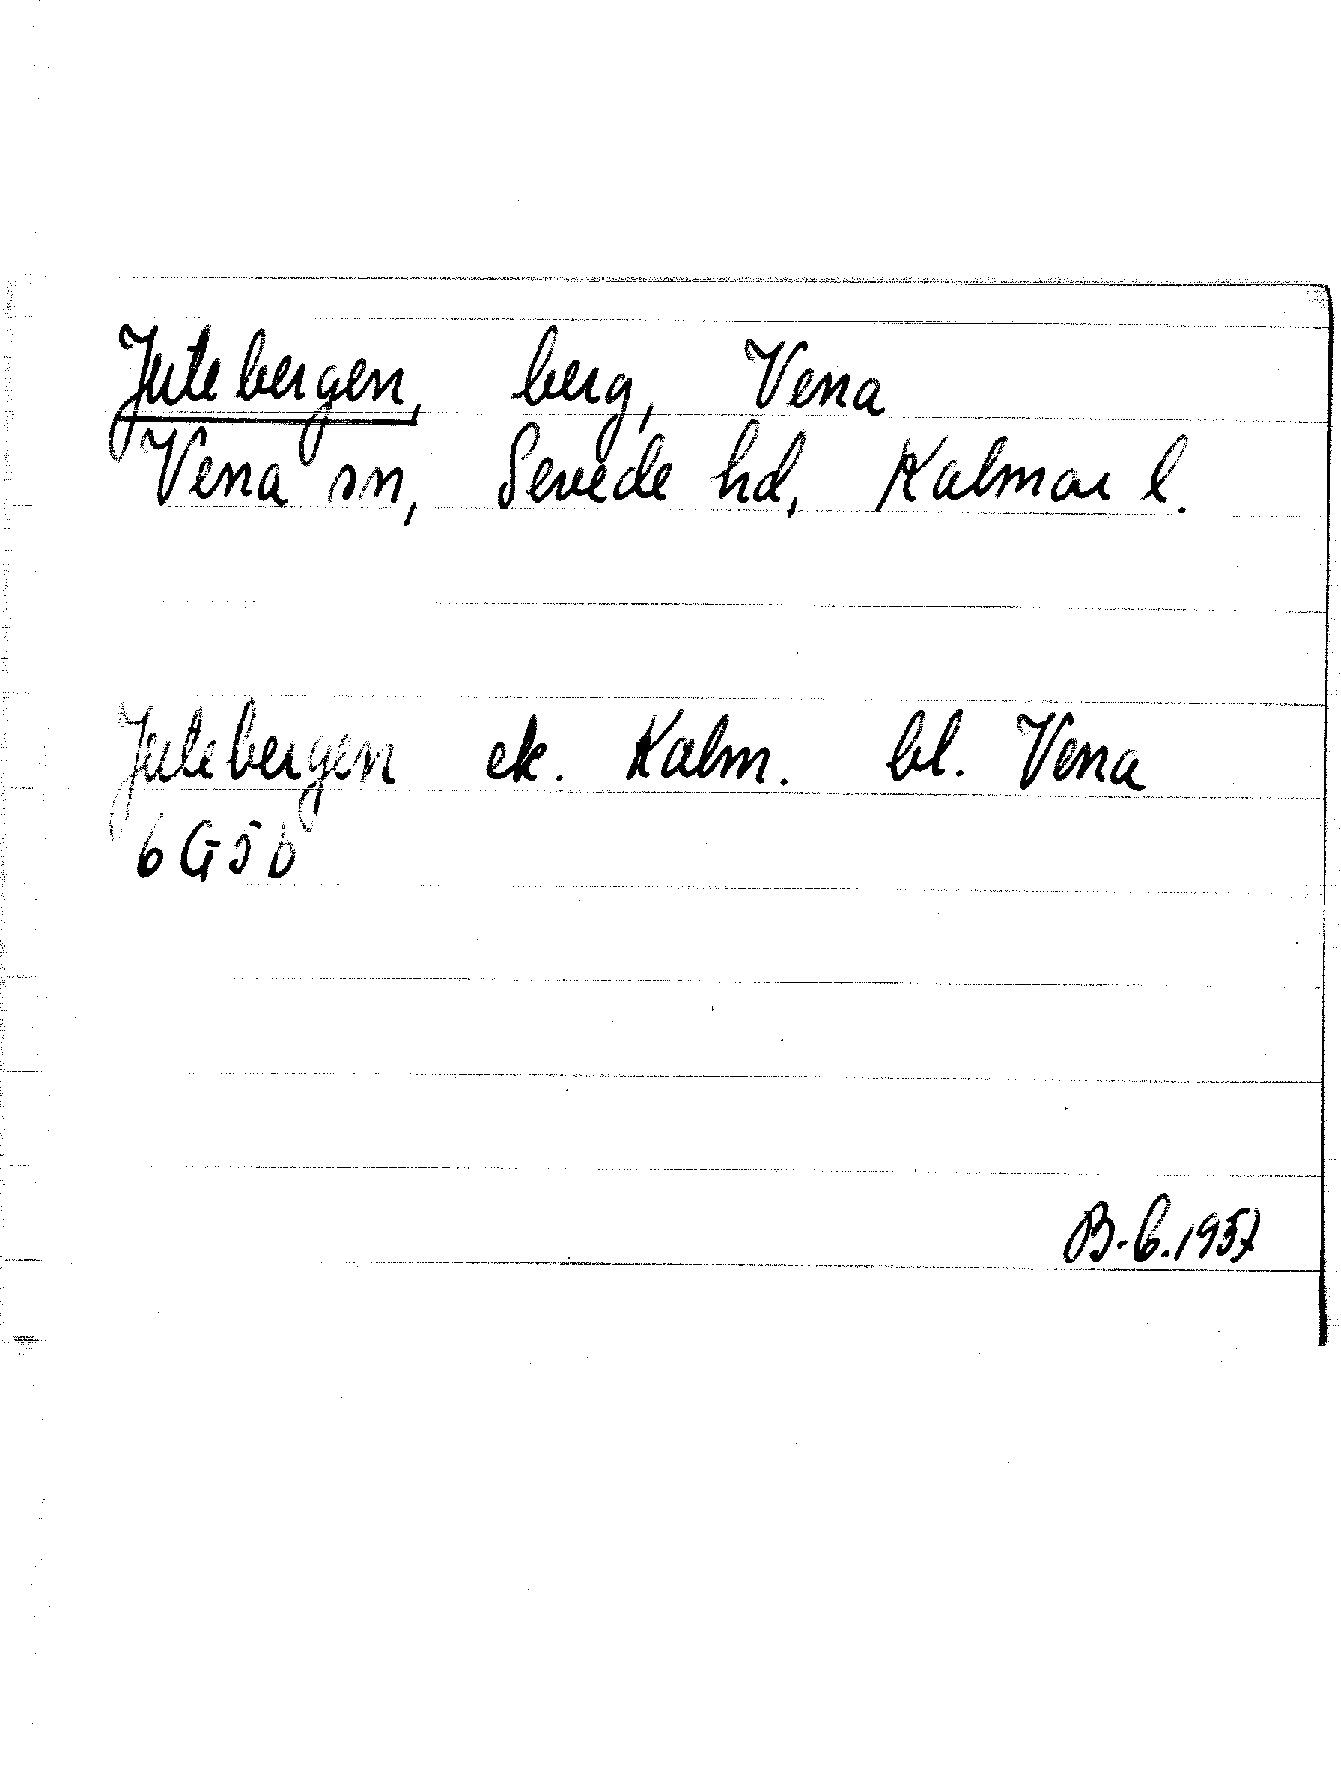 Jutebergen, berg, Vena
Vena sn, Sevede hd, Kalmar l.
Jutebergen ek. Kalm. bl. Vena
6G5b
B-C.1957